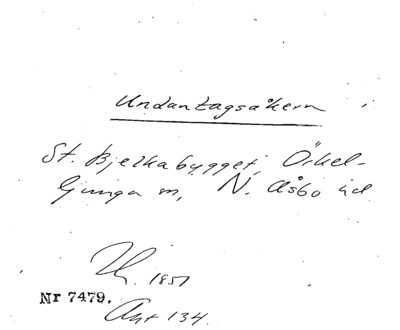 Undantagsåkern
St. Bjelkabygget, Örkel-
ljunga sn, N. Åsbo hd
Th. 1851
Nr 7479.
Akt 134.